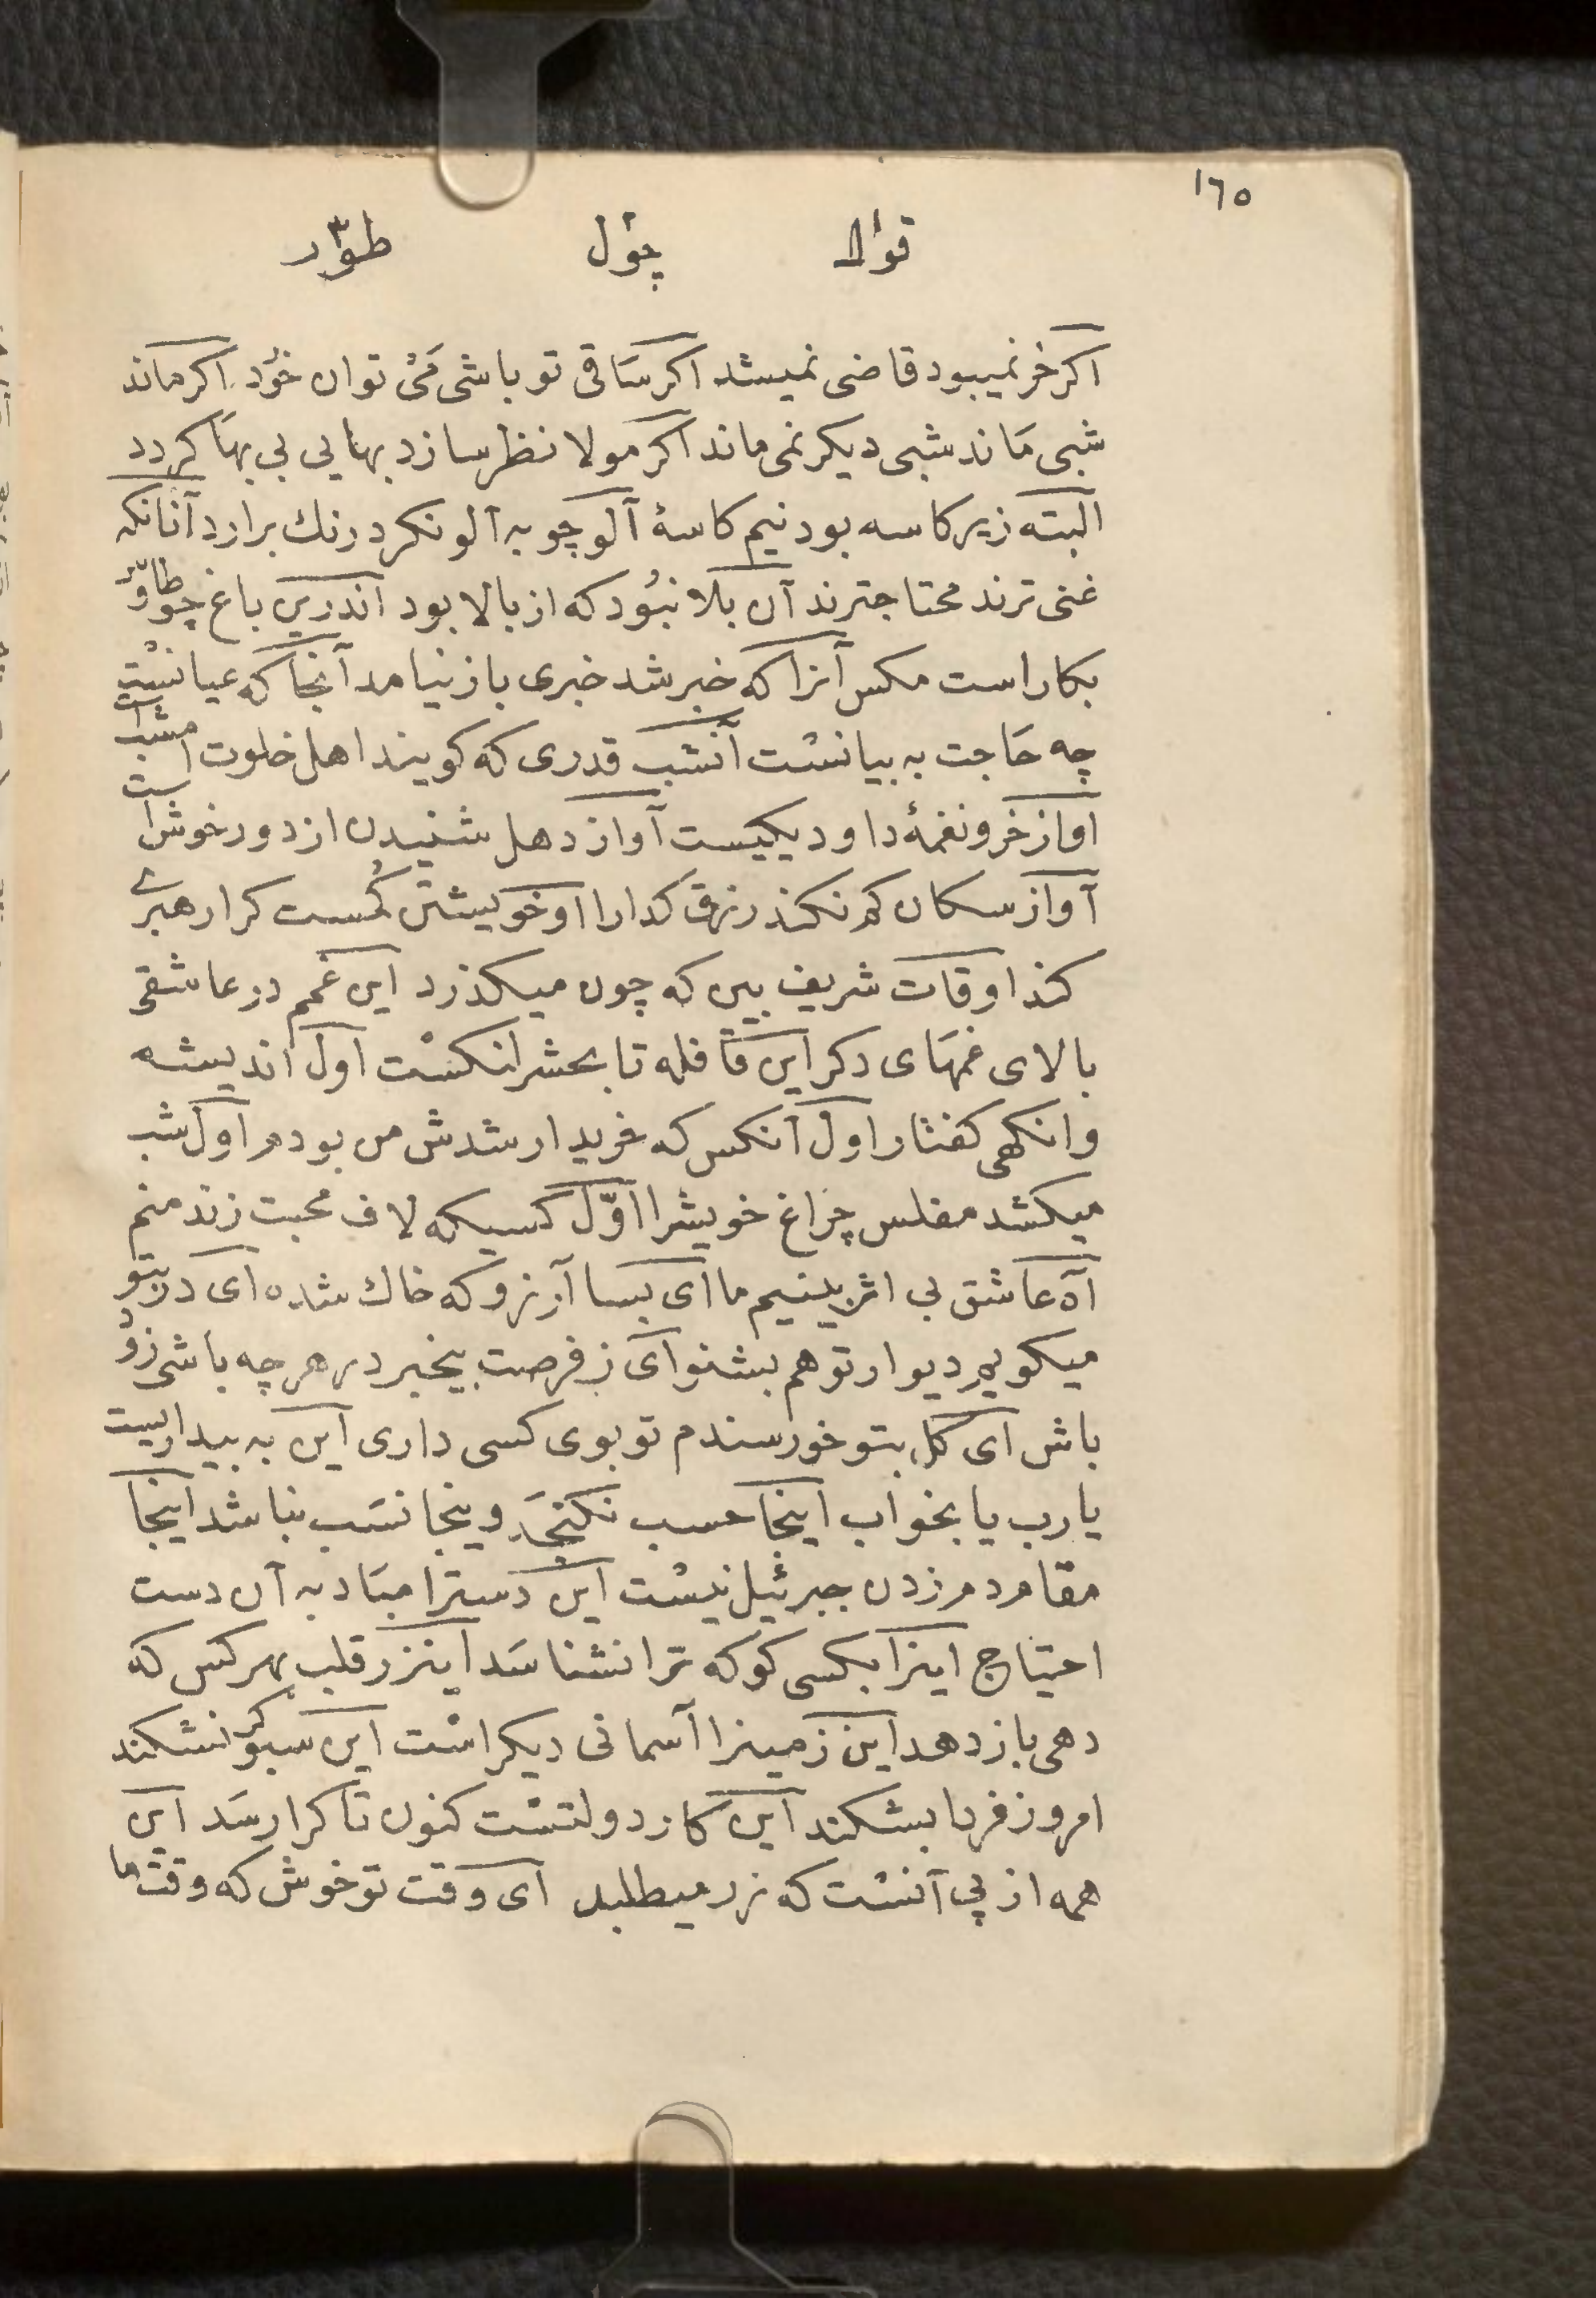 ١٦٥
قوْلا چوْل طوّر
اکر خر نمیبود قاضی نمیشد اکر سَاقی تو باشی مَیْ توان خوْد اکر ماند
شبی مَاند شبی دیکر نمی ماند اکر مولا نظر سازد بهایی بی بهَا کردد
البته زیر کاسه بود نیم کاسهٔ آلو چو به آلو نکرد رنك برارد آنانکه
غنی ترند محتاجترند آن بلا نبُود که از بالا بود اندرین باغ چو طاوّس
بکار است مکس آنرا که خبر شد خبری باز نیامد آنجا که عیانسْت
چه حَاجت به بیانسْت آنشب قدری که کویند اهل خلوت امشب است
اواز خر و نغمهٔ داود یکیست آواز دهل شنیدن از دور خوش است
آواز سکان کم نکند رزق کدارا او خویشتن کُمست کرا رهبرے
کند اوقات شریف بین که چون میکذرد این غم در عاشقی
بالای غمهَای دکر این قافله تا بحشر لنکسْت اول اندیشه
وانکهی کفتار اول آنکس که خریدار شدش من بودم اول شب
میکشد مفلس چراغ خویشرا اوّل کسیکه لاف محبت زند منم
آه عاشق بی اثر بینیم ما ای بسا آرزو که خاك شده ای در بتو
میکویم دیوار تو هم بشنو ای ز فرصت بیخبر در هر چه باشی زوْد
باش ای کل بتو خورسندم تو بوی کسی داری این به بیداریست
یارب یا بخواب اینجا حسب نکنجَد وینجا نسَب نباشد اینجا
مقام دم زدن جبرئیل نیسْت این دسترا مبَاد به آن دست
احتیاج اینرا بکسی کو که ترا نشناسَد اینزر قلب بهر کس که
دهی باز دهد این زمینرا آسمانی دیکر اسْت این سبو کر نشکند
امروز فردا بشکند این کار دولتسْت کنون تا کرا رسَد این
همه از پی آنسْت که زر میطلبد ای وقت تو خوش که وقت ما